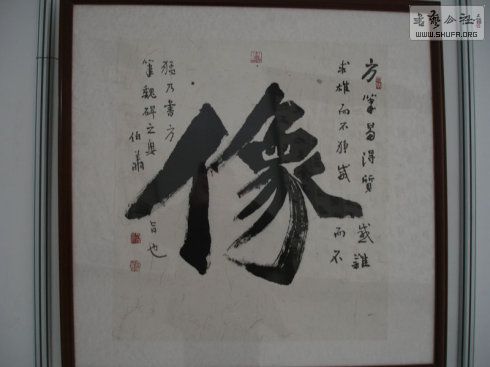 方筆易得質感難
求雄而不威而不
像
猛乃書方
筆魏碑之奧旨也
伯蕭
書藝公社
WWW.SHUFA.ORG